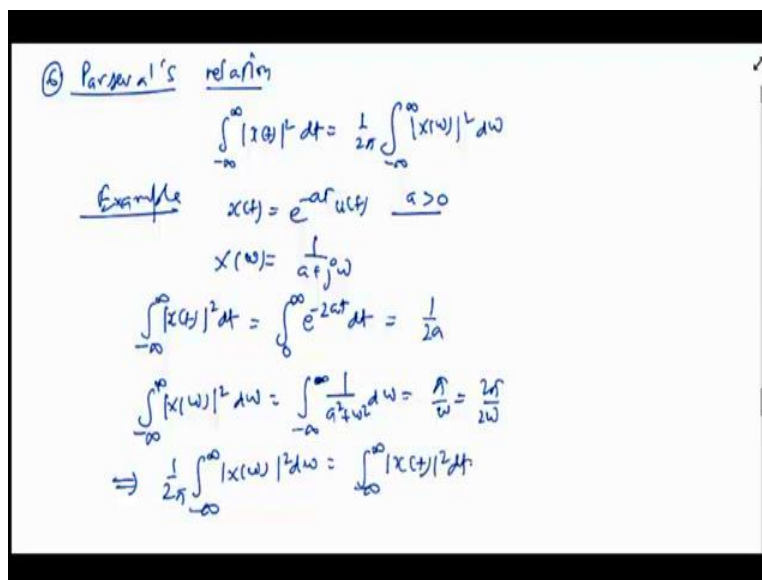 ⑥ Parseval's relation
∫_{-∞}^{∞} |x(t)|² dt = 1/2π ∫_{-∞}^{∞} |X(ω)|² dω
Example x(t) = e^{-at} u(t) a>0
X(ω) = 1/(a+jω)
∫_{-∞}^{∞} |x(t)|² dt = ∫_{0}^{∞} e^{-2at} dt = 1/2a
∫_{-∞}^{∞} |X(ω)|² dω = ∫_{-∞}^{∞} 1/(a²+ω²) dω = π/ω = 2π/2ω
⇒ 1/2π ∫_{-∞}^{∞} |X(ω)|² dω = ∫_{-∞}^{∞} |x(t)|² dt.